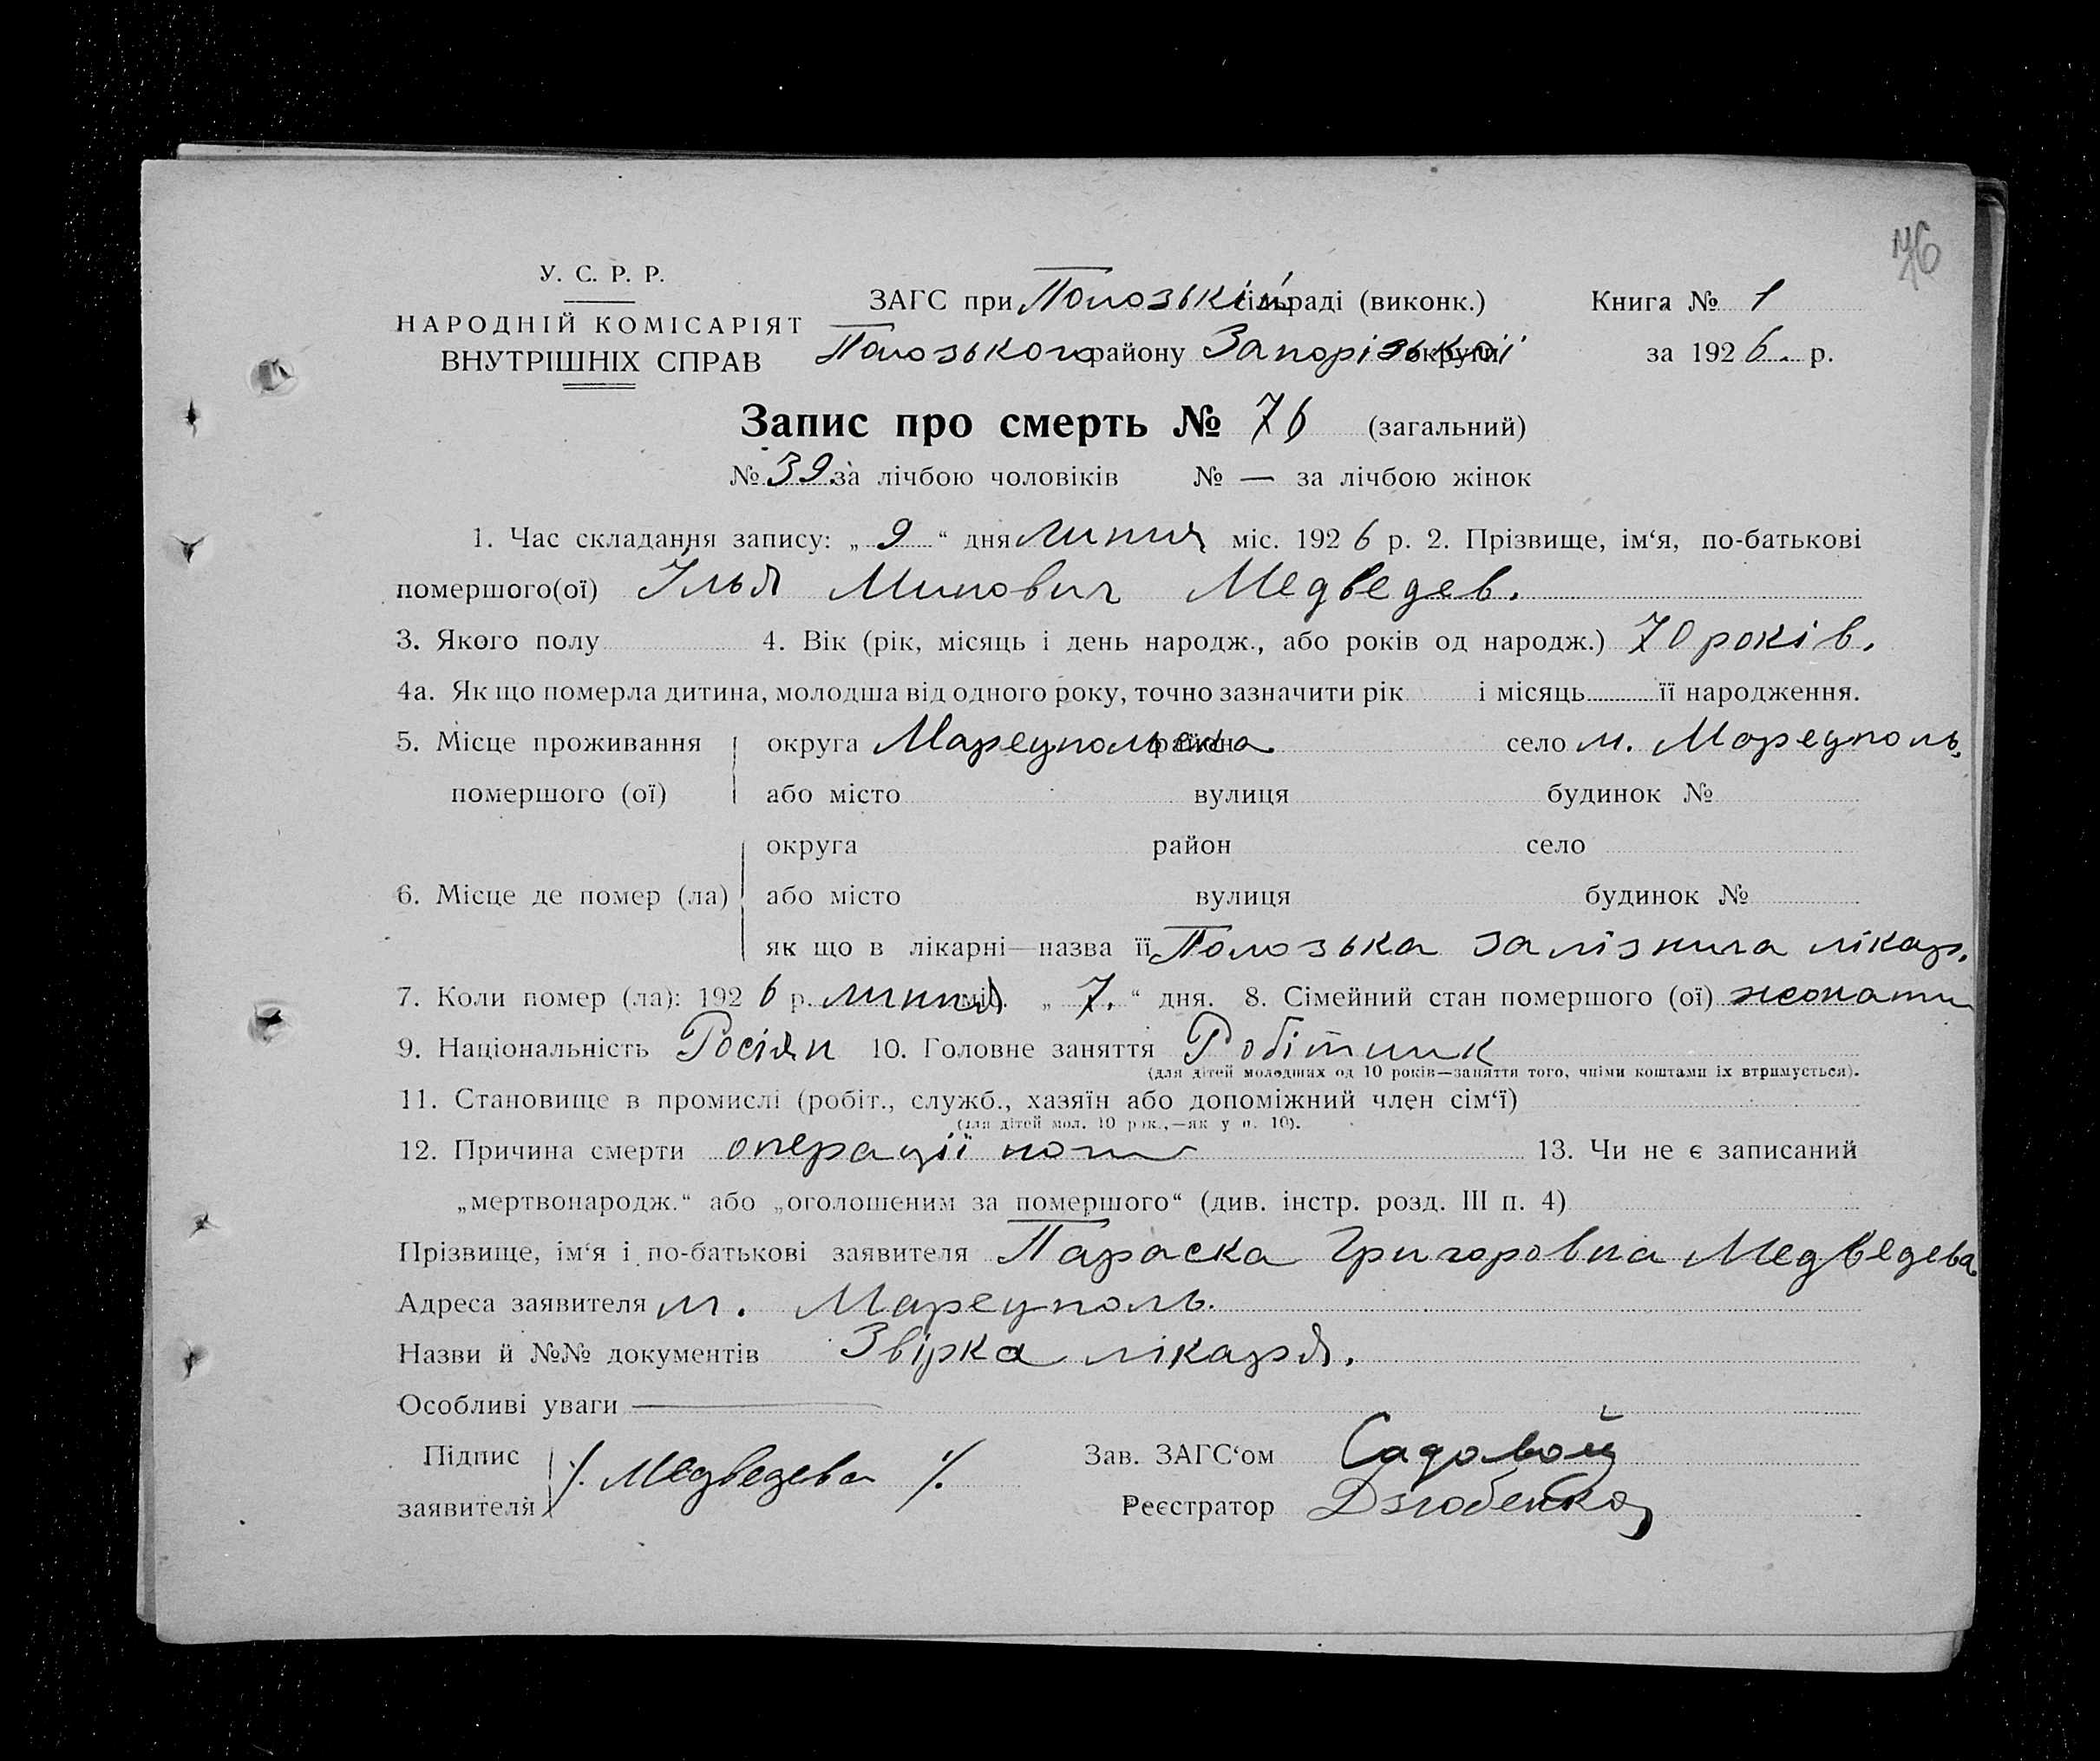 76
У. С. Р. Р.
НАРОДНІЙ КОМІСАРІЯТ
ВНУТРІШНІХ СПРАВ
ЗАГС при Пологській сільраді (виконк.) Книга № 1
Пологського району Запорізської округи за 1926. р.
Запис про смерть № 76 (загальний)
№ 39 за лічбою чоловіків № — за лічбою жінок
1. Час складання запису: „ 9 “ дня липня міс. 1926 р. 2. Прізвище, ім‘я, по-батькові
помершого(ої) Ілья Медведев.
3. Якого полу 4. Вік (рік, місяць і день народж., або років од народж.) 70 років.
4а. Як що померла дитина, молодша від одного року, точно зазначити рік і місяць її народження.
5. Місце проживання округа Мареупольська район село м. Мареуполь,
помершого (ої) або місто вулиця будинок №
округа район село
6. Місце де помер (ла) або місто вулиця будинок №
як що в лікарні—назва її Полозька залізнича лікар.
7. Коли помер (ла): 1926 р. липня міс. „ 7. “ дня. 8. Сімейний стан помершого (ої) жонати
9. Національність Росіян 10. Головне заняття Робітник
(для дітей молодших од 10 років—заняття того, чиїми коштами їх втримується).
11. Становище в промислі (робіт., служб., хазяїн або допоміжний член сім‘ї)
(для дітей мол. 10 рок.,—як у п. 10).
12. Причина смерти операції 13. Чи не є записаний
„мертвонародж.“ або „оголошеним за помершого“ (див. інстр. розд. III п. 4)
Прізвище, ім‘я і по-батькові заявителя Параска Григоровна Медведева
Адреса заявителя м. Мареуполь.
Назви й №№ документів Звірка лікаря.
Особливі уваги —
Підпис Зав. ЗАГС‘ом Садовой
заявителя /. Медведева /. Реєстратор